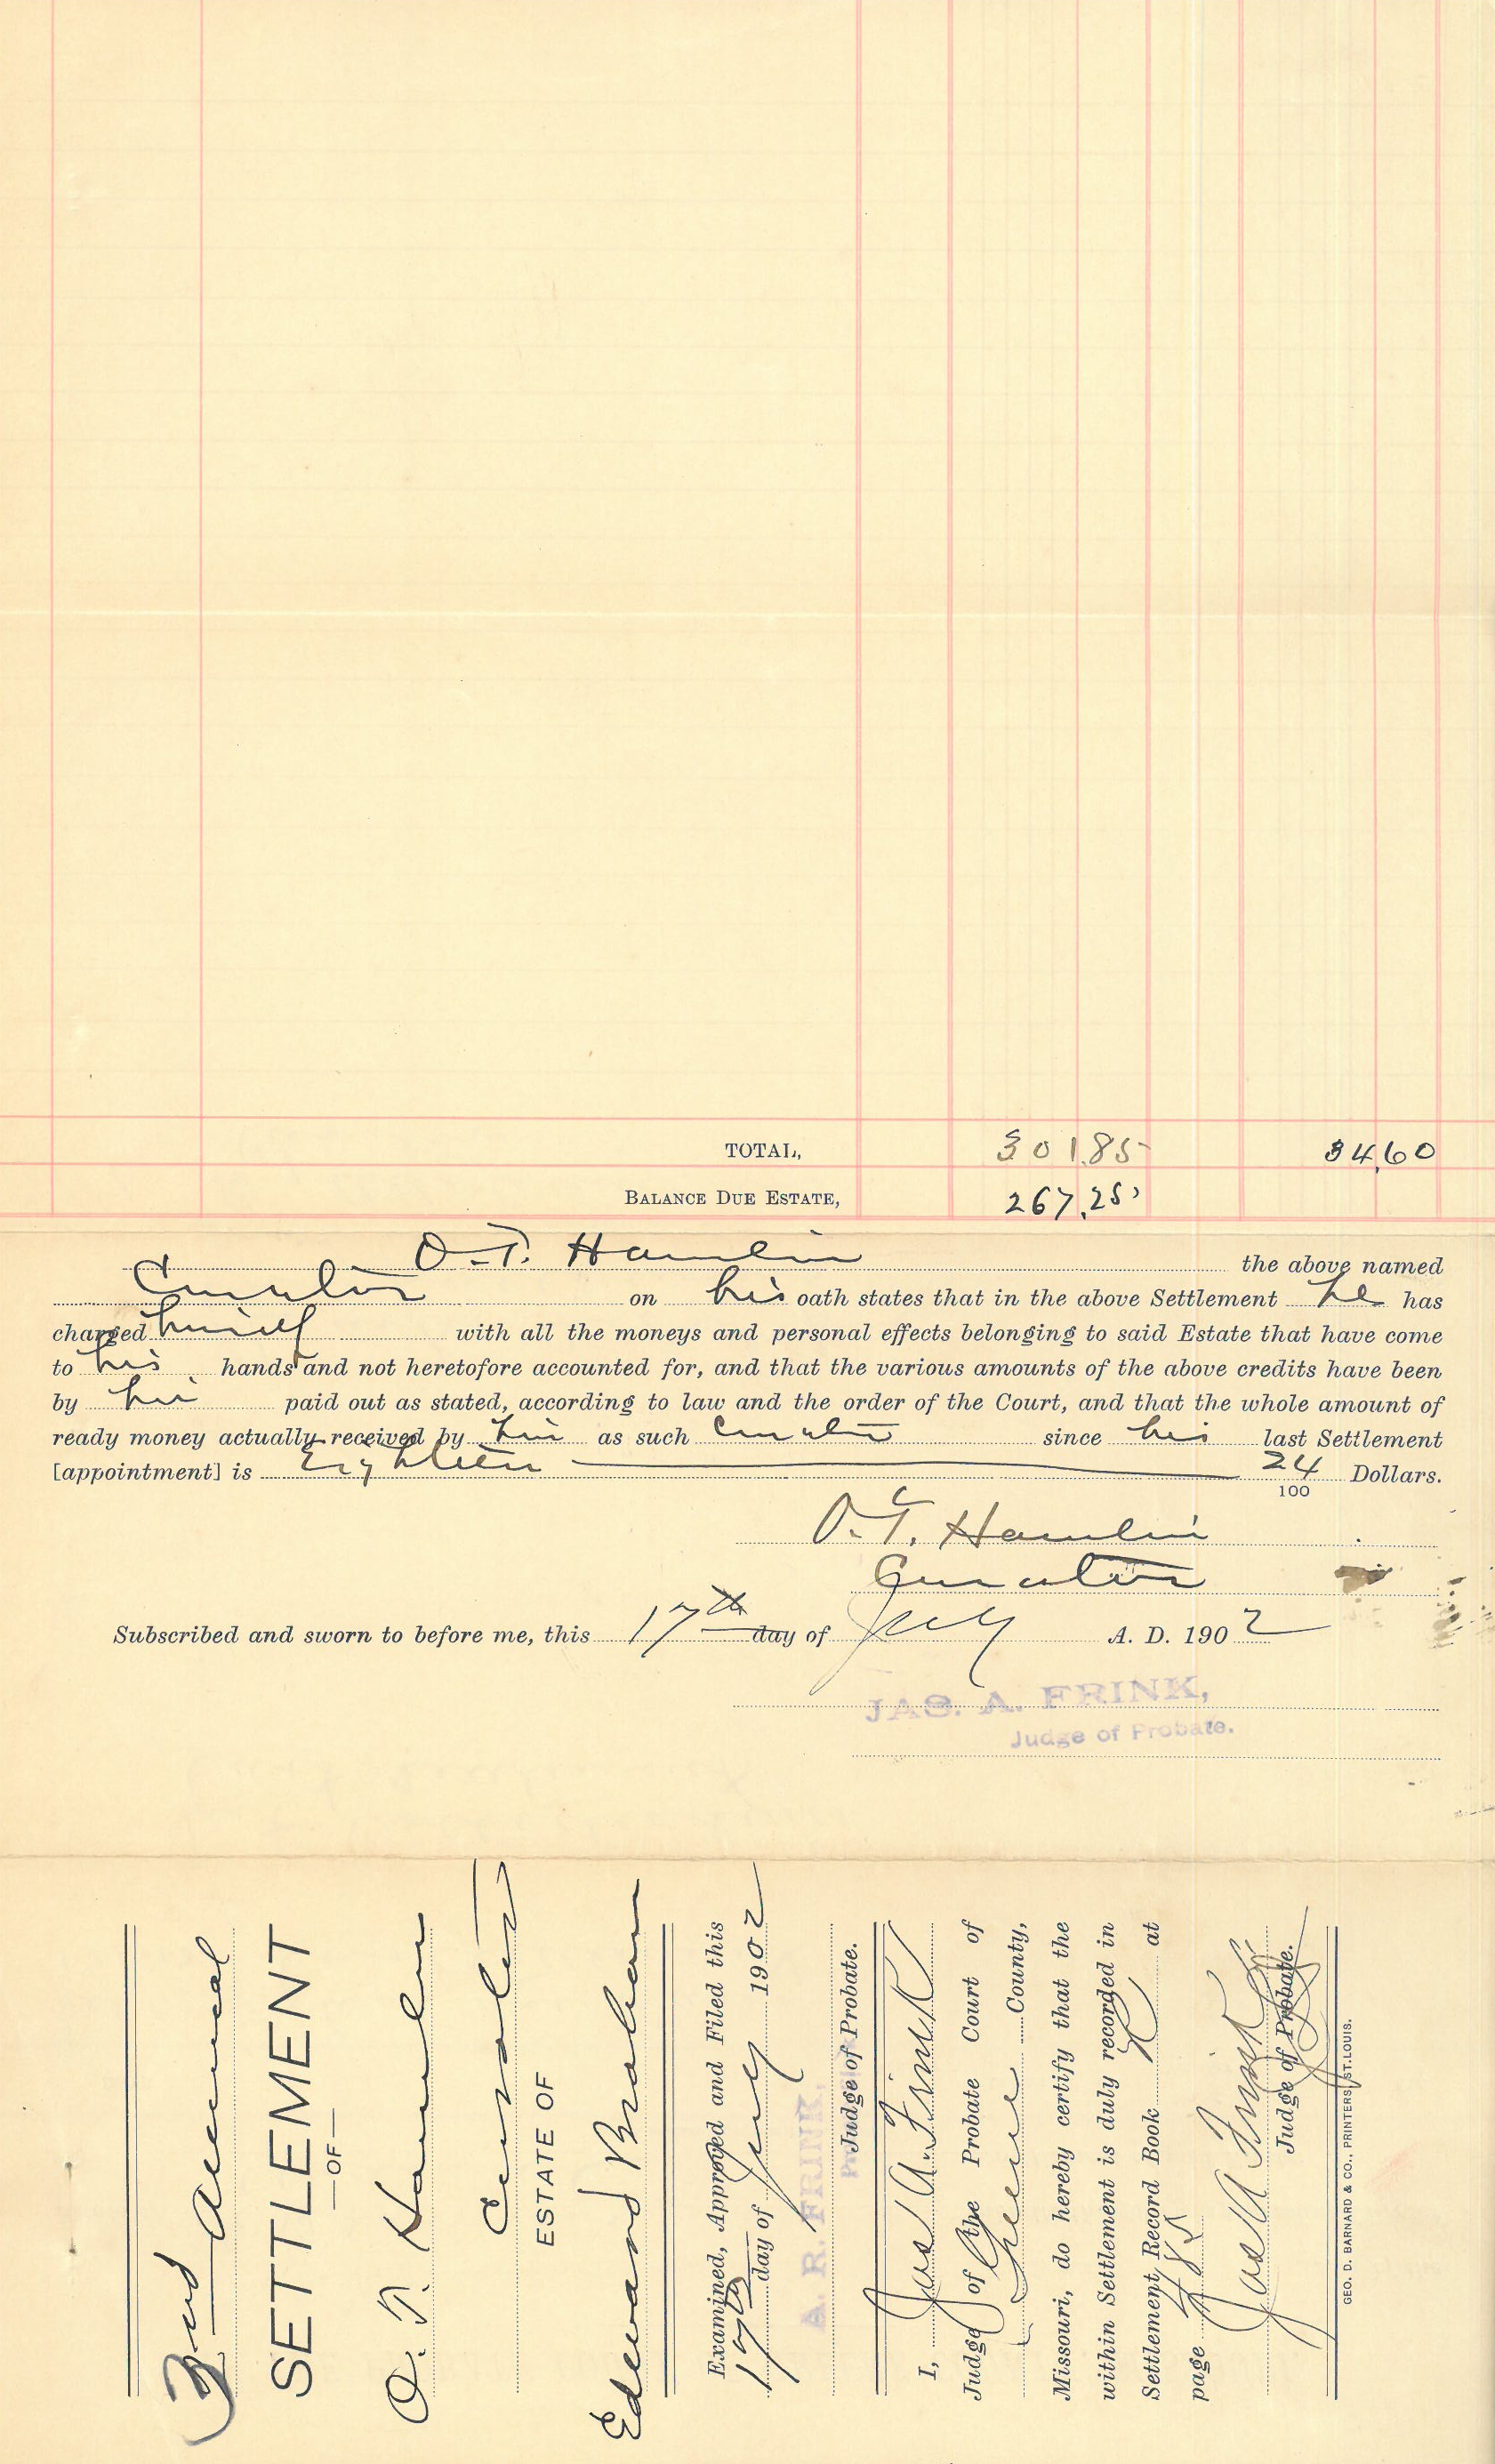 TOTAL, 301.85 34.60
BALANCE DUE ESTATE, 267.25
O. T. Hamlin the above named
Curator on his oath states that in the above Settlement he has
charged himself with all the moneys and personal effects belonging to said Estate that have come
to his hands and not heretofore accounted for, and that the various amounts of the above credits have been
by him paid out as stated, according to law and the order of the Court, and that the whole amount of
ready money actually received by him as such Curator since his last Settlement
[appointment] is Eighteen 24/100 Dollars.
O. T. Hamlin
Curator
Subscribed and sworn to before me, this 17th day of July A. D. 1902
JAS. A. FRINK,
Judge of Probate.
Annual
SETTLEMENT
—OF—
O. T. Hamlin
Curator
ESTATE OF
Edward Braham
Examined, Approved and Filed this
17th day of July 1902
A. R. FRINK,
Judge of Probate.
I, Jas A. Frink
Judge of the Probate Court of
Greene County,
Missouri, do hereby certify that the
within Settlement is duly recorded in
Settlement Record Book at
page 485
Jas A Frink
Judge of Probate.
GEO. D. BARNARD & CO., PRINTERS, ST. LOUIS.